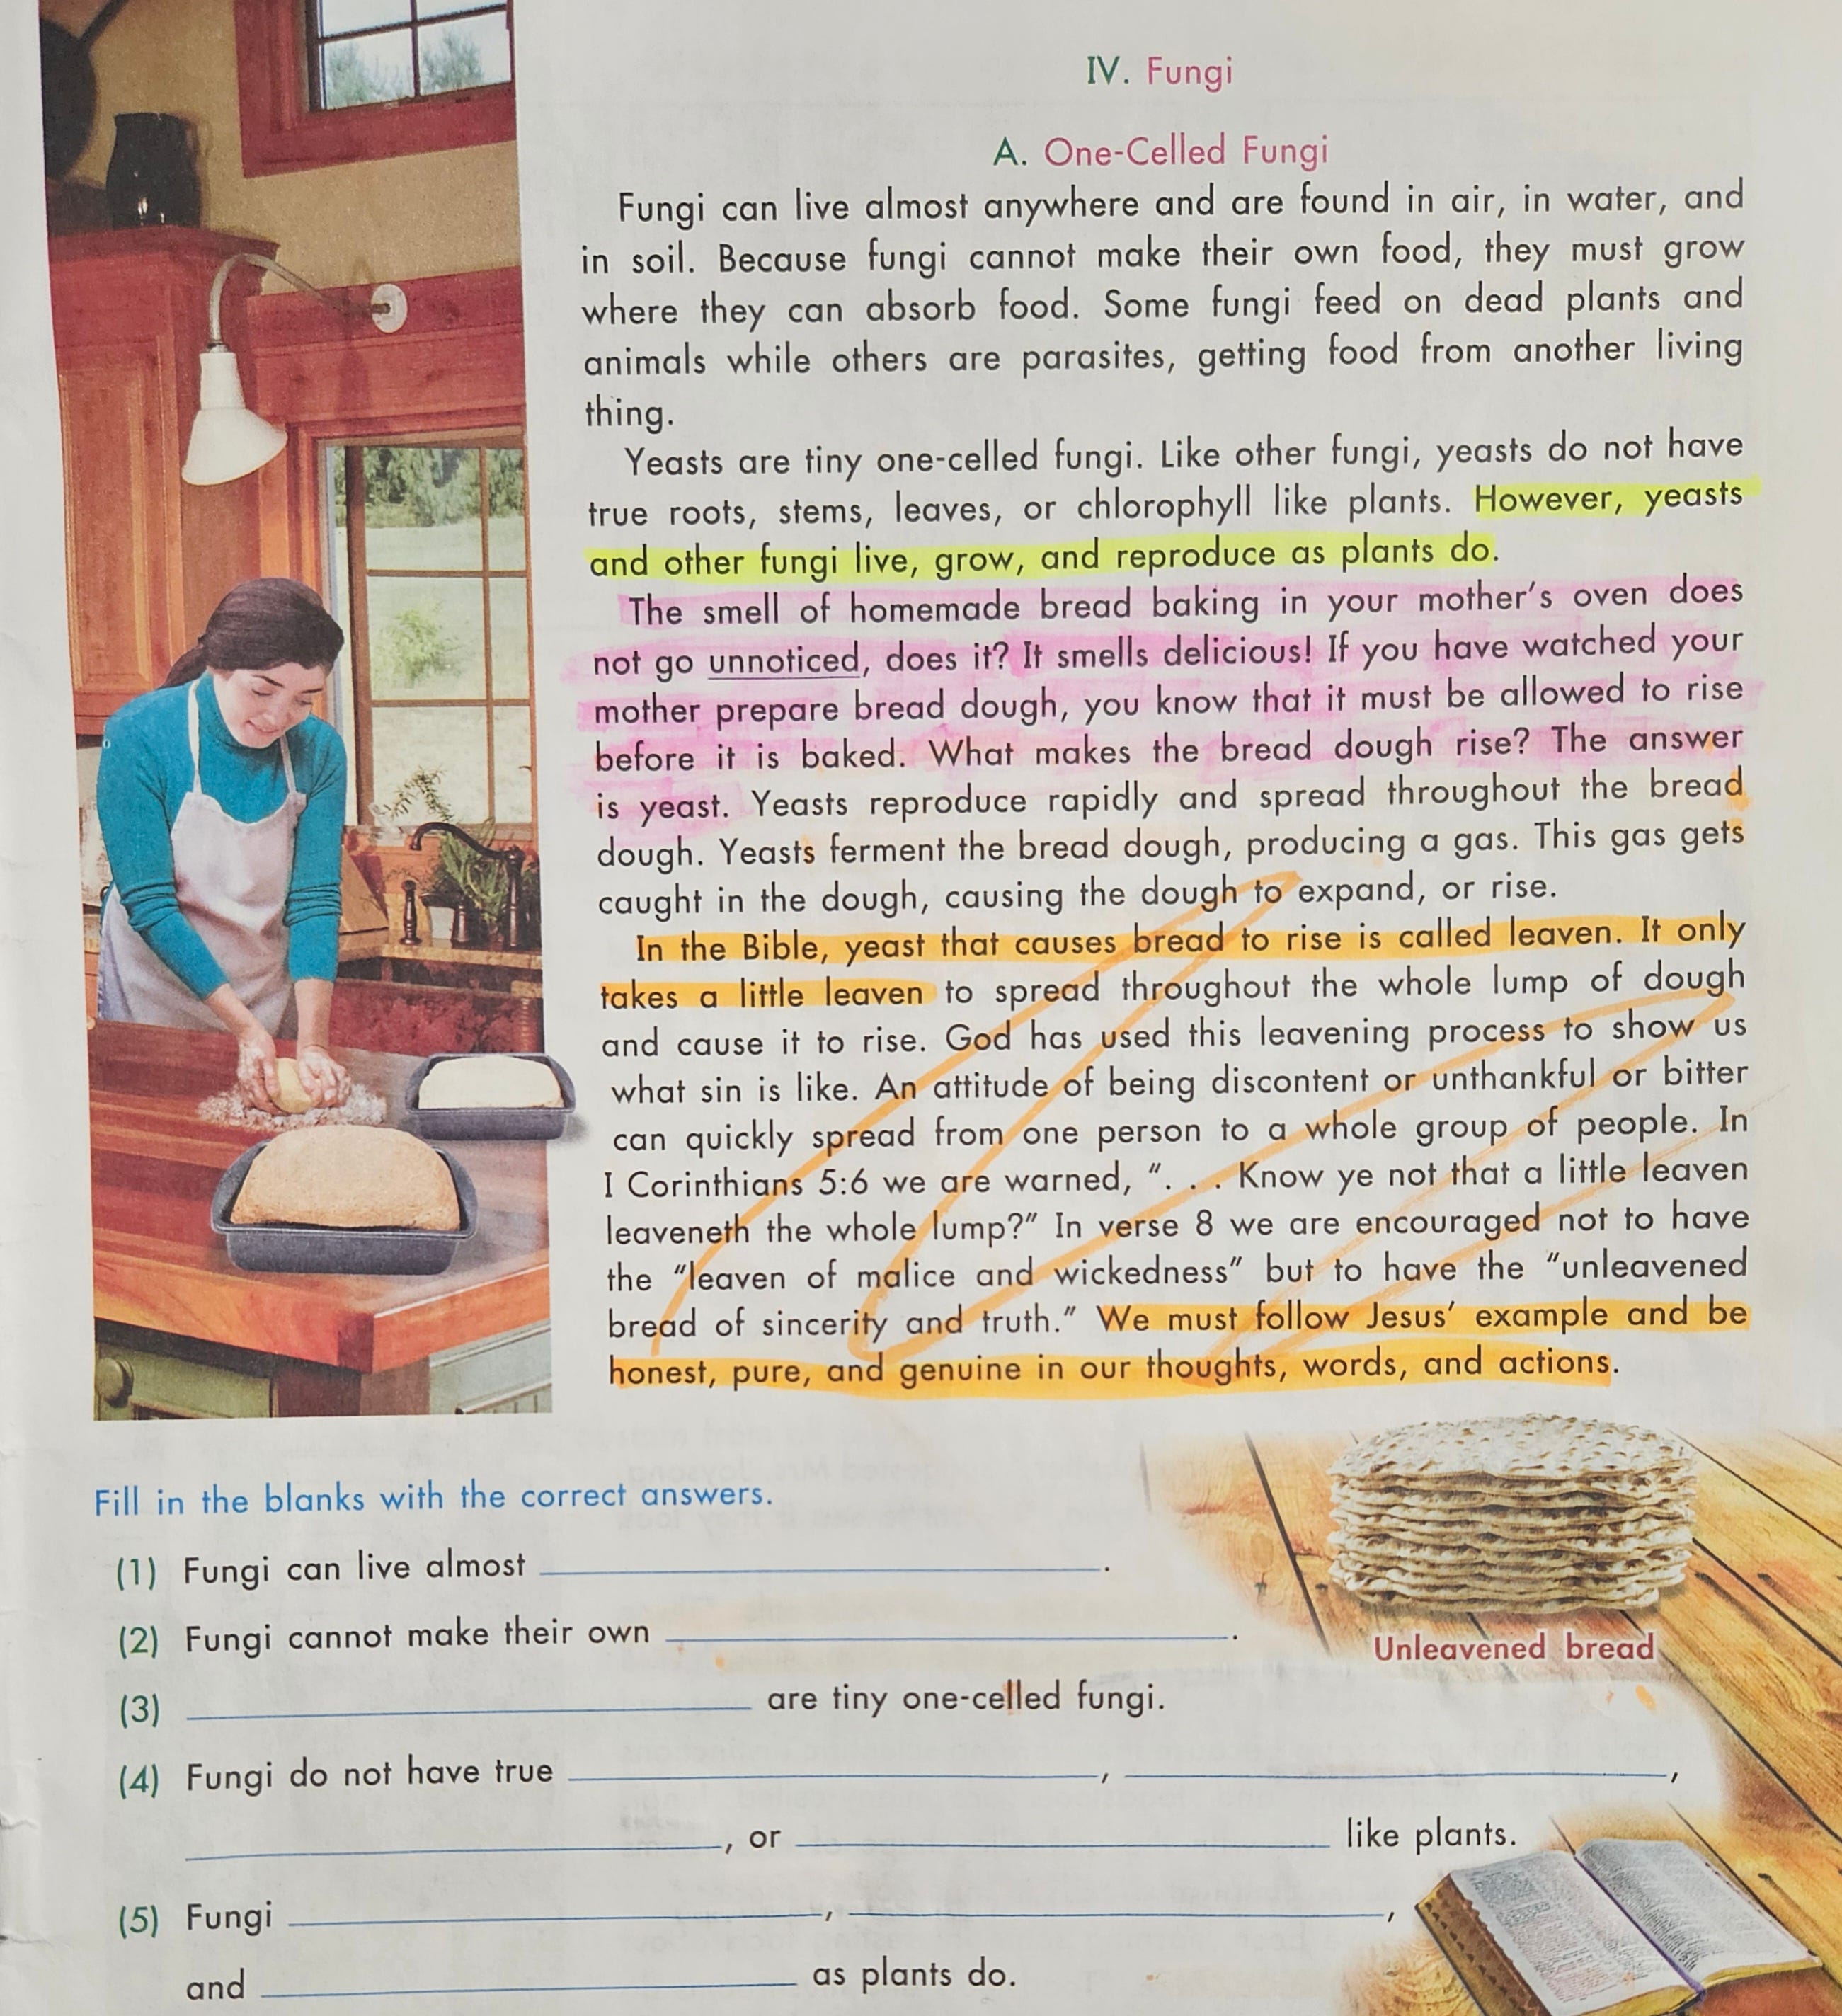 IV. Fungi
A. One-Celled Fungi
Fungi can live almost anywhere and are found in air, in water, and
in soil. Because fungi cannot make their own food, they must grow
where they can absorb food. Some fungi feed on dead plants and
animals while others are parasites, getting food from another living
thing.
Yeasts are tiny one-celled fungi. Like other fungi, yeasts do not have
true roots, stems, leaves, or chlorophyll like plants. However, yeasts
and other fungi live, grow, and reproduce as plants do.
The smell of homemade bread baking in your mother's oven does
not go unnoticed, does it? It smells delicious! If you have watched your
mother prepare bread dough, you know that it must be allowed to rise
before it is baked. What makes the bread dough rise? The answer
is yeast. Yeasts reproduce rapidly and spread throughout the bread
dough. Yeasts ferment the bread dough, producing a gas. This gas gets
caught in the dough, causing the dough to expand, or rise.
In the Bible, yeast that causes bread to rise is called leaven. It only
takes a little leaven to spread throughout the whole lump of dough
and cause it to rise. God has used this leavening process to show us
what sin is like. An attitude of being discontent or unthankful or bitter
can quickly spread from one person to a whole group of people. In
I Corinthians 5:6 we are warned, ". . . Know ye not that a little leaven
leaveneth the whole lump?" In verse 8 we are encouraged not to have
the "leaven of malice and wickedness" but to have the "unleavened
bread of sincerity and truth." We must follow Jesus' example and be
honest, pure, and genuine in our thoughts, words, and actions.
Fill in the blanks with the correct answers.
(1) Fungi can live almost .
(2) Fungi cannot make their own .
Unleavened bread
(3) are tiny one-celled fungi.
(4) Fungi do not have true , ,
, or like plants.
(5) Fungi , ,
and as plants do.